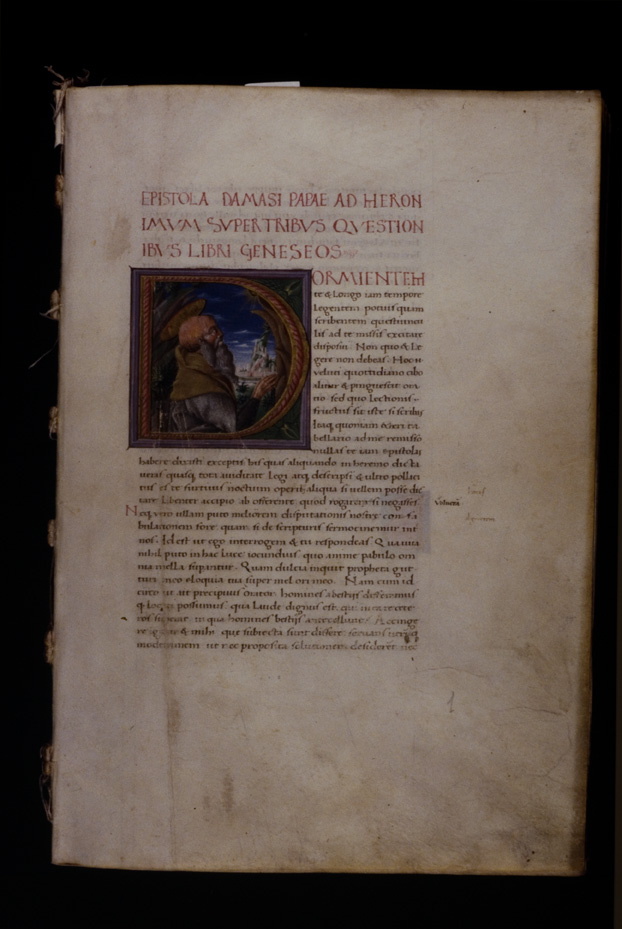 EPISTOLA DAMASI PAPAE AD HERON
IMVM SVPER TRIBVS QVESTION
IBVS LIBRI GENESEOS
DORMIENTEM
te & Longo iam tempore
Legentem potius quam
scribentem questiuncu
lis ad te missis excitare
disposui. Non quo & Le
gere non debeas. Hoc .n.
veluti quottidiano cibo
alitur & pinguescit ora
tio sed quo Lectionis
fructus sit iste si scribis
Itaq quoniam & heri ta
bellario ad me remisso
nullas te iam epistolas
habere dixisti exceptis his quas aliquando in heremo dicta
ueras quasq tota auiditate Legi atq descripsi & ultro pollici
tus es te furtiuis noctum operis aliqua si vellem posse dic
tare Libenter accipio ab offerente quod rogare si negasses
Neq vero ullam puto digniorem disputationis nostre confa
bulationem fore quam si de scripturis sermocinemur int
nos. Id est ut ego interrogem & tu respondeas Qua uita
nihil puto in hac Luce iocundius quo anime pabulo om
nia mella superantur. Quam dulcia inquit propheta gut
turi meo eloquia tua super mel ori meo. Nam cum id
circo ut ait precipuus orator homines a bestijs differamus
q Loqui possumus qua Laude dignus est qui in ea re cete
ros superat in qua homines bestijs antecellunt. Accinge
re igitur & mihi que subiecta sunt dissere seruans utrobiq
moderamen ut nec proposita solutionem desiderent nec